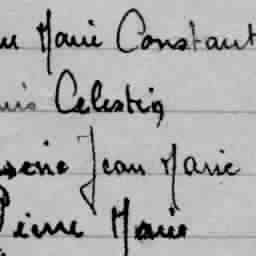 Marie Constant
Celestin
Jean Marie
Pierre Marie